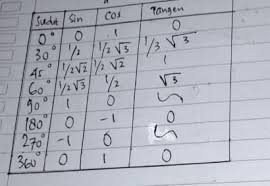 Sudut Sin Cos Tangen
0° 0 1 0
30° 1/2 1/2 √3 1/3 √3
45° 1/2 √2 1/2 √2 1
60° 1/2 √3 1/2 √3
90° 1 0 ~
180° 0 -1 0
270° -1 0 ~
360° 0 1 0